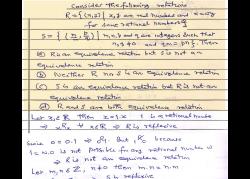 Consider the following relations
R = {(x,y) | x, y are real numbers and x = wy
for some rational number w}
S = {(m/n, p/q) | m, n, p and q are integers such that
n, q ≠ 0 and qm = pn}. Then
(a) R is an equivalence relation but S is not an
equivalence relation
(b) Neither R nor S is an equivalence relation
(c) S is an equivalence relation but R is not an
equivalence relation
(d) R and S are both equivalence relation
Let x ∈ R then x = 1·x 1 is a rational number
⇒ R is reflexive
Since 0 = 0·1 but because
1 = w·0 is not possible for any rational number w
R is not an equivalence relation
Let m, n ∈ Z, n ≠ 0 then
S is reflexive